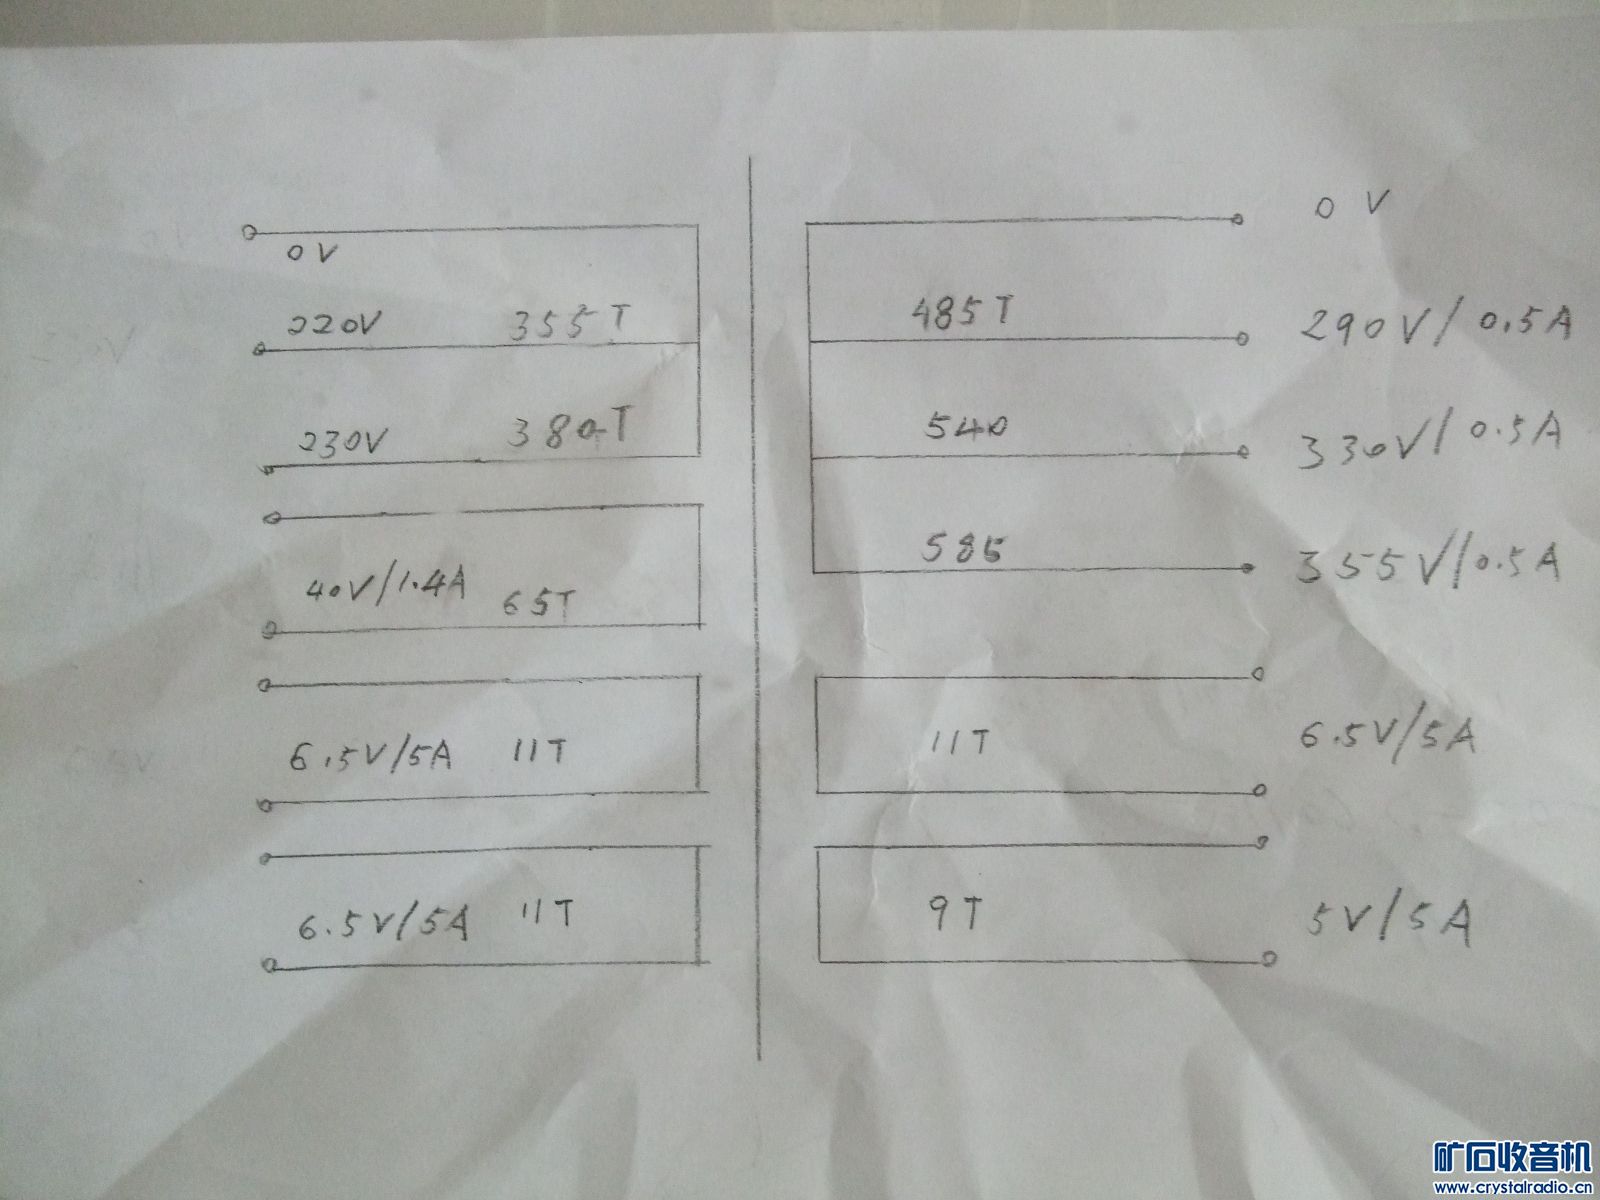 0V
220V 355T
230V 380T
40V/1.4A 65T
6.5V/5A 11T
6.5V/5A 11T
0 V
485T 290V/0.5A
540 330V/0.5A
585 355V/0.5A
11T 6.5V/5A
9T 5V/5A
矿石收音机
www.crystalradio.cn